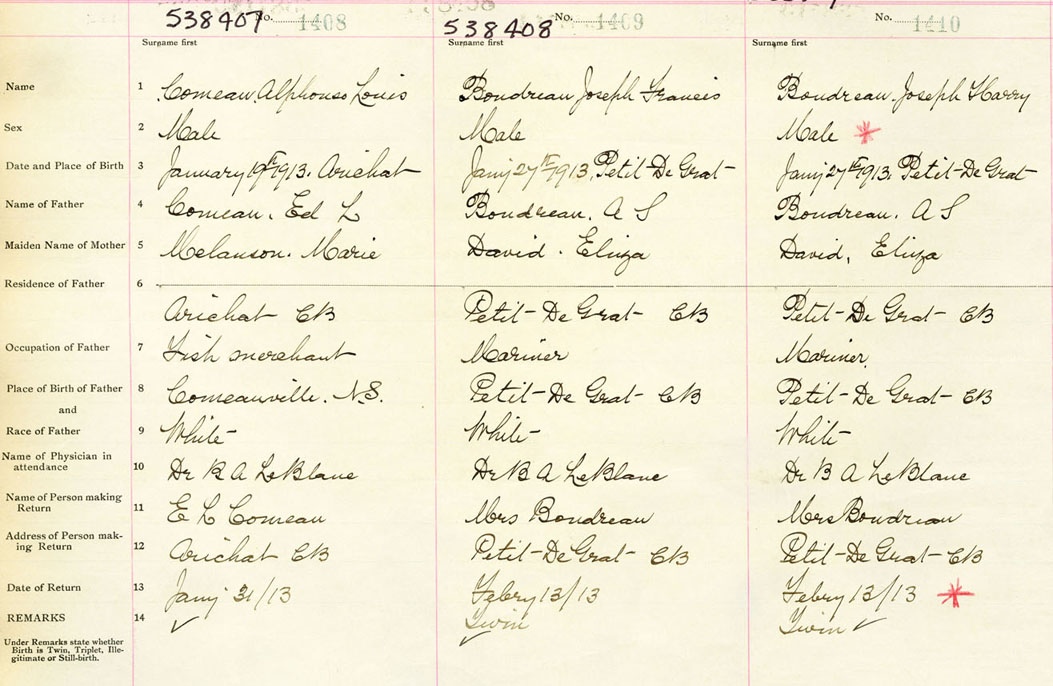 538407 No. 1408
538408 No. 1409
No. 1410
Surname first Surname first Surname first
Name 1 Comeau, Alphonso Louis Boudreau Joseph Francis Boudreau Joseph Harry
Sex 2 Male Male Male *
Date and Place of Birth 3 January 19th 1913. Arichat Jany 27th 1913, Petit-De Grat Jany 27th 1913, Petit-De Grat
Name of Father 4 Comeau. Ed L Boudreau. A S Boudreau. A S
Maiden Name of Mother 5 Melanson. Marie David. Eliza David, Eliza
Residence of Father 6
Arichat CB Petit-De Grat CB Petit-De Grat CB
Occupation of Father 7 Fish merchant Mariner Mariner
Place of Birth of Father 8 Comeauville. N.S. Petit-De Grat CB Petit-De Grat CB
and
Race of Father 9 White White White
Name of Physician in
attendance 10 Dr B A LeBlanc Dr B A LeBlanc Dr B A LeBlanc
Name of Person making
Return 11 E L Comeau Mrs Boudreau Mrs Boudreau
Address of Person mak-
ing Return 12 Arichat CB Petit-De Grat CB Petit-De Grat CB
Date of Return 13 Jany 31/13 Febry 13/13 Febry 13/13 *
REMARKS 14 ✓ Twin ✓ Twin ✓
Under Remarks state whether
Birth is Twin, Triplet, Ille-
gitimate or Still-birth.